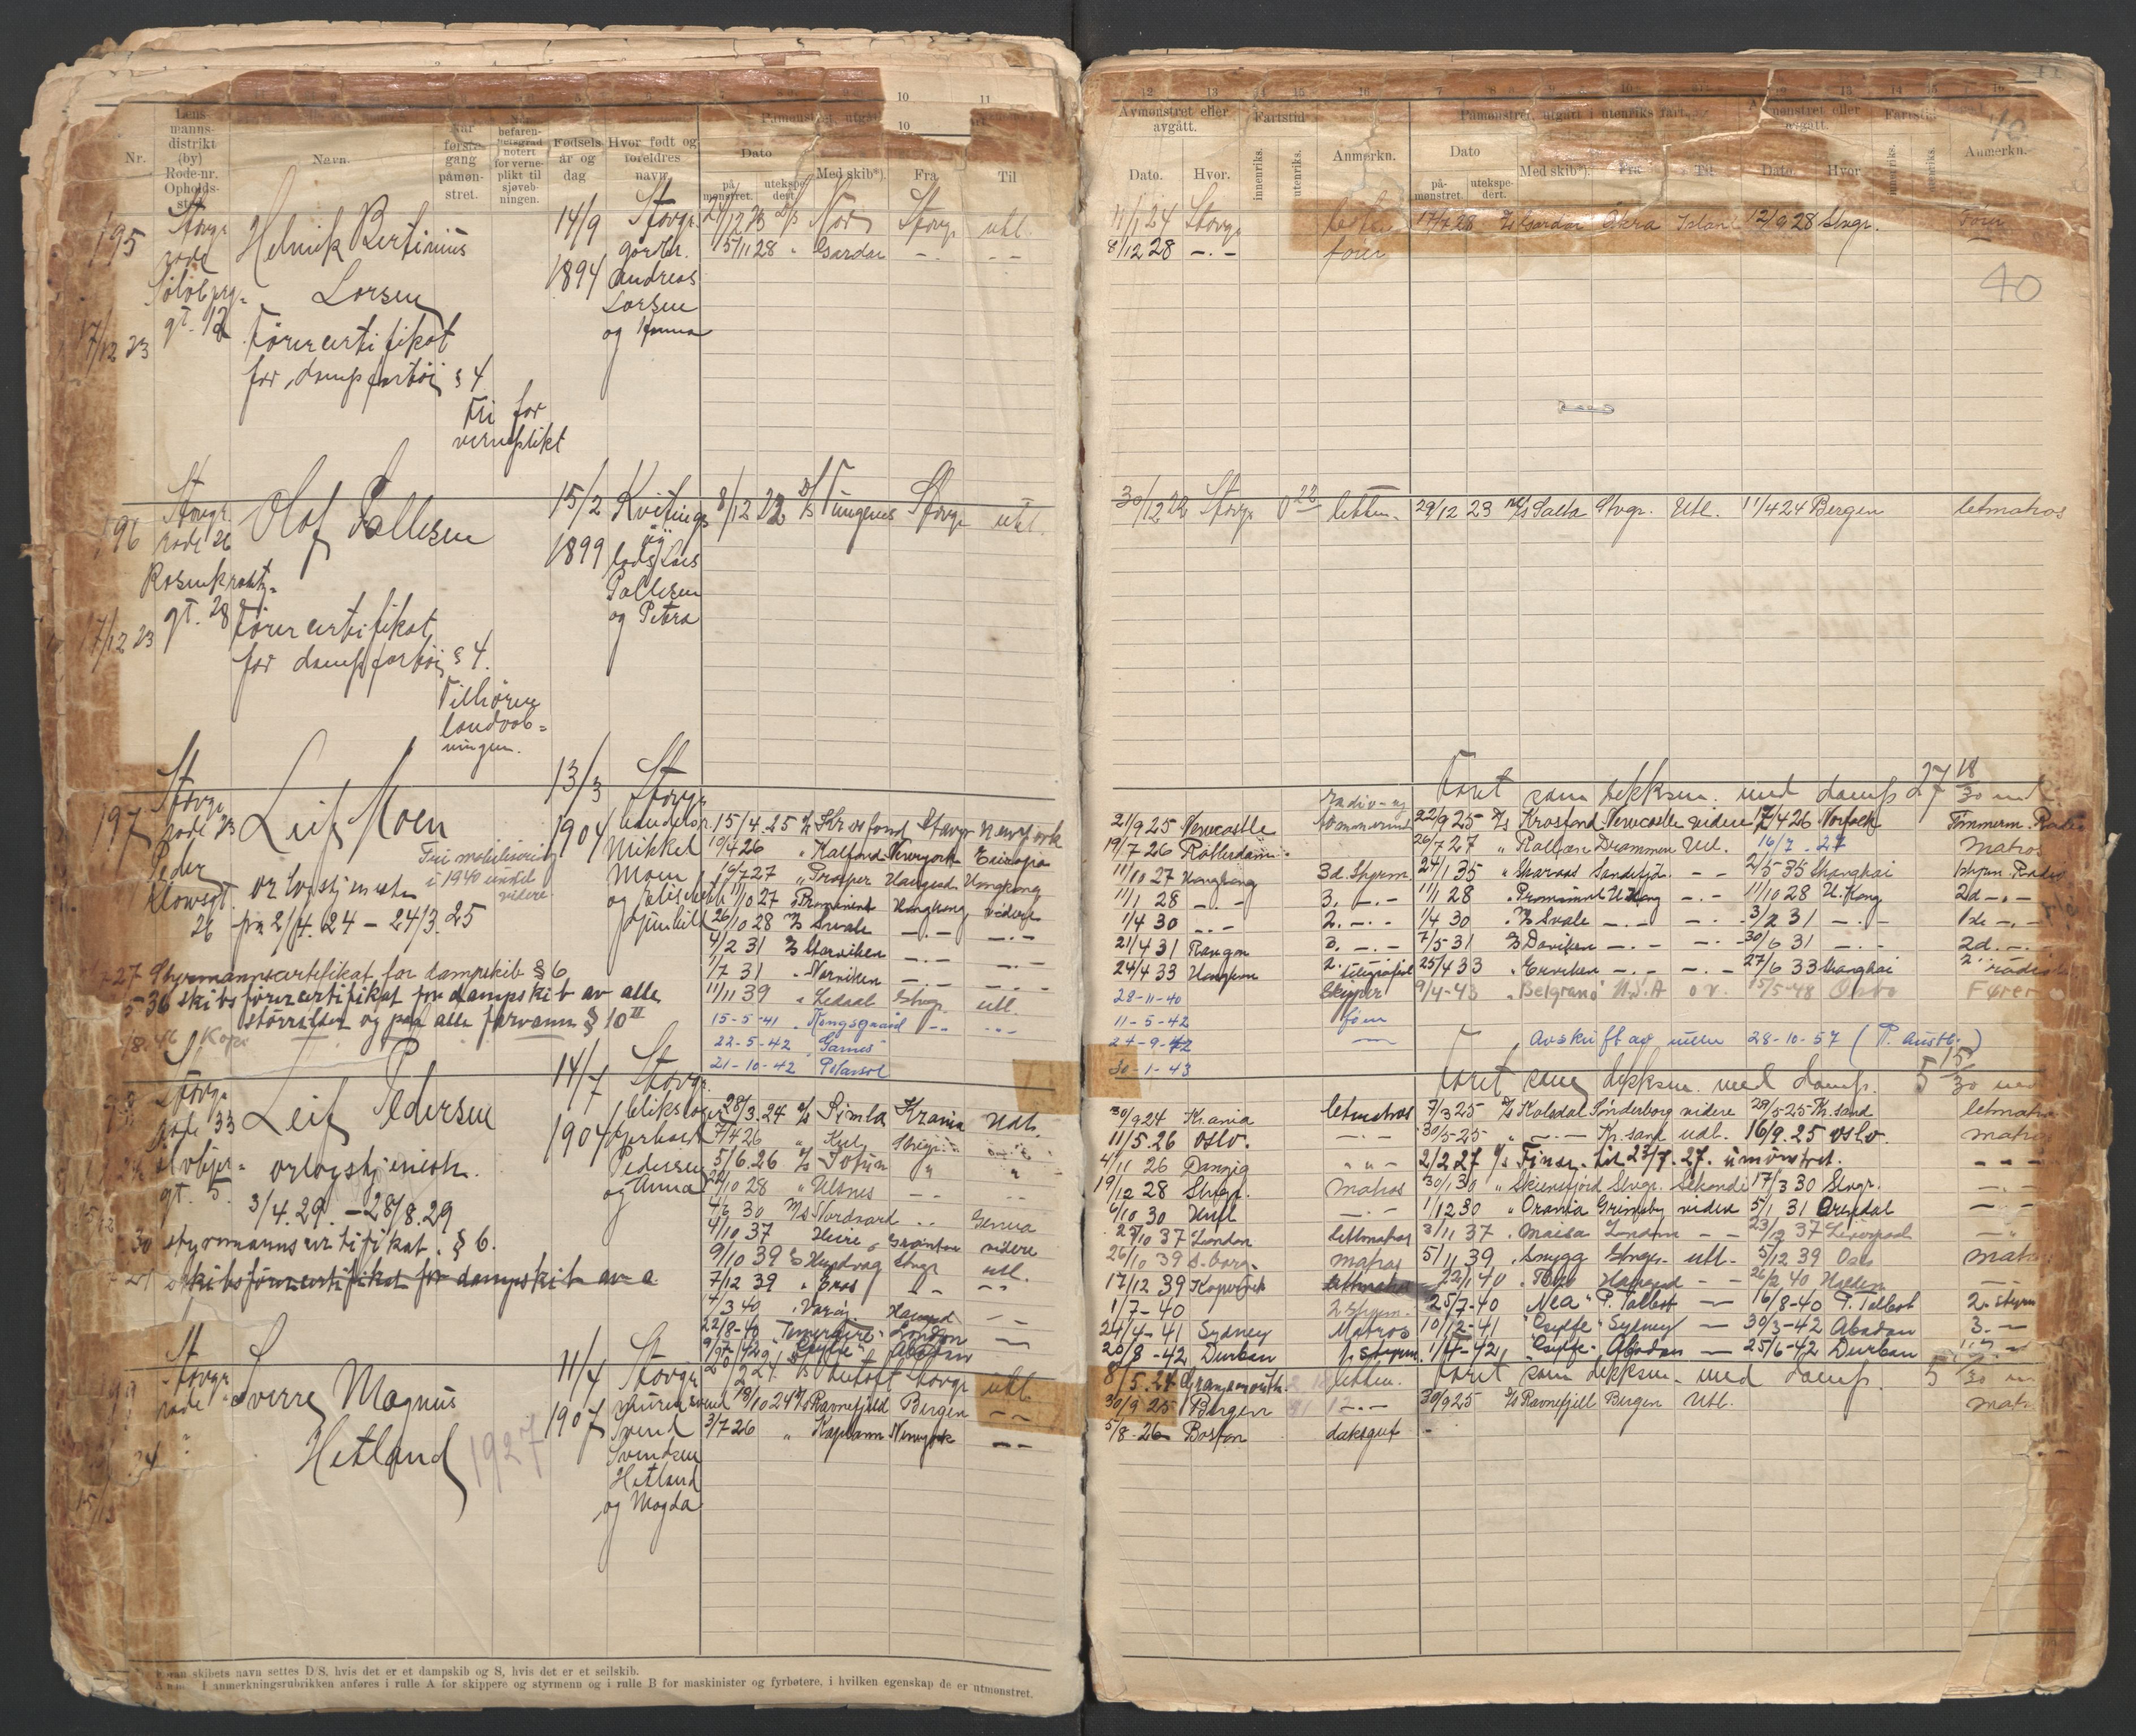 10 11
Lens-
manns-
distrikt
(by)
Rode-nr.
Opholds-
Nr.
Navn.
Når
første
gang
påmøn-
stret.
befaren-
hetsgrad
notert
for verne-
plikt til
sjøveb-
ningen.
Fødsels
år og
dag
Hvor født og
foreldres
navn.
Dato
på-
mønstret.
utekspe-
dert.
Med skib*).
Fra
Til
195
Stavgr.
rode
gt. 12
17/12 23
Helmik Bertinius
Larsen
Førercertifikat
for dampfartøi § 4
Fri for
verneplikt
14/9
1894
Stavgr.
Andreas
Larsen
og Anna
21/12 23 D/S Nor Stavgr. utl.
15/11 28 " Gardar -.- -.-
196
Stavgr.
rode 26
Rosenkrantz-
gt. 28
17/12 23
Olaf Pallesen
Førercertifikat
for dampfartøi § 4.
Tilhører
landveb-
ningen.
15/2
1899
Kvitings
øy
lods Lars
Pallesen
og Petra
8/12 22 D/S Tungenes Stavgr. utl.
197
Stavgr.
rode 23
Peder
Klowsgt.
26
Leif Moen
Fri mobilisering
i 1940 inntil
videre
orlogstjeneste
fra 2/4.24 - 24/3.25
27 Styrmannscertifikat for dampskib § 6
5 36 skibsførercertifikat for dampskib av alle
størrelser og paa alle farvann § 10 II
18.46 Kopi
13/3
1904
Stavgr.
Mikkel
Moen
og Elisabeth
Gunhild
15/4.25 D/S Krosfond Stavgr. Newyork
19/4 26 " Kalfond Newyork Europa
16/7 27 " Prosper Haugesd. Hongkong
11/10 27 " Prominent Hongkong videre
26/10 28 D/S Svale -.- -.-
4/2 31 D/S Norviken -.- -.-
1/7 31 " Norviken -.- -.-
11/11 39 " Ledaal Stvgr. utl.
15-5-41 " Kongsgaard -- ---
22-5-42 " Garnes "
21-10-42 " Polarsol
198
Stavgr.
rode 33
gt. 5.
Leif Pedersen
orlogstjeneste.
3/4.29. - 28/8.29
30 styrmannscertifikat. § 6.
skibsførercertifikat for dampskib av a
14/7
1904
Stavgr.
blikslager
Gerhard
Pedersen
og Anna
28/3.24 D/S Simla Krania Utl.
7/4 26 " Kul Stvgr.
5/6.26 D/S Jotun " "
22/10 28 " Ulsnes -- --
4/6 30 M/S Nordvard .. Genua
4/10 37 Heire videre
9/10 39 D/S Hundvaag Stvgr. utl.
7/12 39 " Eros - --
1/3 40 " Varöy Haugesd --
22/8-40 "Temeraire" London —
9/9-42 "Sylfe" Abadan
199
Stavgr.
rode
Sverre Magnus
Hetland
1927
11/4
1907
Stavgr.
murer
Svend
Svendsen
Hetland
og Magda
20/2 24 D/S Tutoft Stavgr. utl.
18/10 24 D/S Ravnefjeld Bergen --
3/7 26 " Kapitann Newyork --
Foran skibets navn settes D/S, hvis det er et dampskib og S, hvis det er et seilskib.
Anm. I anmerkningsrubrikken anføres i rulle A for skippere og styrmenn og i rulle B for maskinister og fyrbøtere, i hvilken egenskap de er utmønstret.
12 13 14 15 16 7 8 9 10 11 12 13 14 15 16
Avmønstret eller
avgått.
Fartstid
Anmerkn.
Dato. Hvor. innenriks. utenriks.
Påmønstret, utgått i utenriks fart.
Avmønstret eller
avgått.
Dato
på-
mønstret.
utekspe-
dert.
Med skib*). Fra Til Dato. Hvor
Anmerkn.
40
40
11/1 24 Stavgr.
17/4 28 D/S Gardar Åkra Island 12/9 28 Stvgr. fører
8/12 28 -.- fører
30/12 22 Stavgr. 0 22 lettm. 29/12 23 M/S Salta Stvgr. Utl. 11/4 24 Bergen letmatros
faret som dekksm. med damp 27 18/30 md
radio- og
21/9 25 Newcastle tømmermd 22/9 25 D/S Krosfond Newcastle videre 17/4 26 Norfolk Tømmerm. Radio
19/7 26 Rotterdam - 26/7 27 " Drammen Utl. 16/7.27 matros
11/10 27 Hongkong 3d. Styrm 24/1 35 " Sandefj. - - 2/5 35 Shanghai 1styrm Radio
11/1 28 -.- 3. -.- 11/1 28 " Prominent H. Kong -.- 11/10 28 H. Kong 2d -.-
1/4 30 -.- 2. -.- 1/4 30 D/S Svale -.- -.- 3/2 31 -.- 1ste -.-
21/4 31 Rangon 2. -.- 7/5-31 D/S Daviken -.- -.- 30/6 31 -.- 2d. -.-
24/4 33 Hongkon 2. telegrafist 25/4 33 " Erviken -.- -.- 27/6 33 Shanghai 2. radiot
28-11-40 Skipper 9/4-43 "Belgrano" U.S.A. o.v. 15/5-48 Oslo Fører
11-5-42 föm
24-9-42 — Avskrift av rullen 28-10-57 (P. Austb.)
30-1-43
faret som dekksm. med damp. 5 15/30 md
30/9 24 Kr.ania letmatros 7/3 25 D/S Kolsdal Sønderborg videre 29/5-25 Kr.sand letmatros
11/5.26 Oslo. -.- 30/5-25 " -.- Kr.sand utl. 16/9.25 Oslo. matros
4/11 26 Danzig " " - 2/2 27 D/S Finse, til 23/7.27. umönstret. - - -
19/12 28 Stvgr. matros 30/1 30 " Skiensfjord Stvgr. Sekondi 17/3 30 Stvgr. -.-
6/10 30 Hull -.- 1/12 30 " Orania Grimsby videre 5/1 31 Arendal - -
25/10 37 London lettmatros 3/11 37 " Maisa London - - 23/12 37 Liverpool
26/10 39 S.borg matros 5/11 39 " Snygg Stvgr. utl. 5/12 39 Oslo matros
17/12 39 Kopervik 22/1 40 " Tejo Haugesd - - 26/2 40 Halden
1/7-40 2 styrm. 25/7-40 "Nea" P. Talbot — 16/8-40 P. Talbot 2. styrm
24/4-41 Sydney Matros 10/12-41 "Sylfe" Sydney — 30/3-42 Abadan 3. —
20/8-42 Durban 1. styrm. 1/4-42 "Sylfe" Abadan — 25/6-42 Durban
8/5.24 Grangemouth lettm. faret som dekksm. med damp. 5 /30 md
30/9 25 Bergen -.- 30/9 25 D/S Ravnefjell Bergen Utl. matr
5/8-26 Boston daksgut -